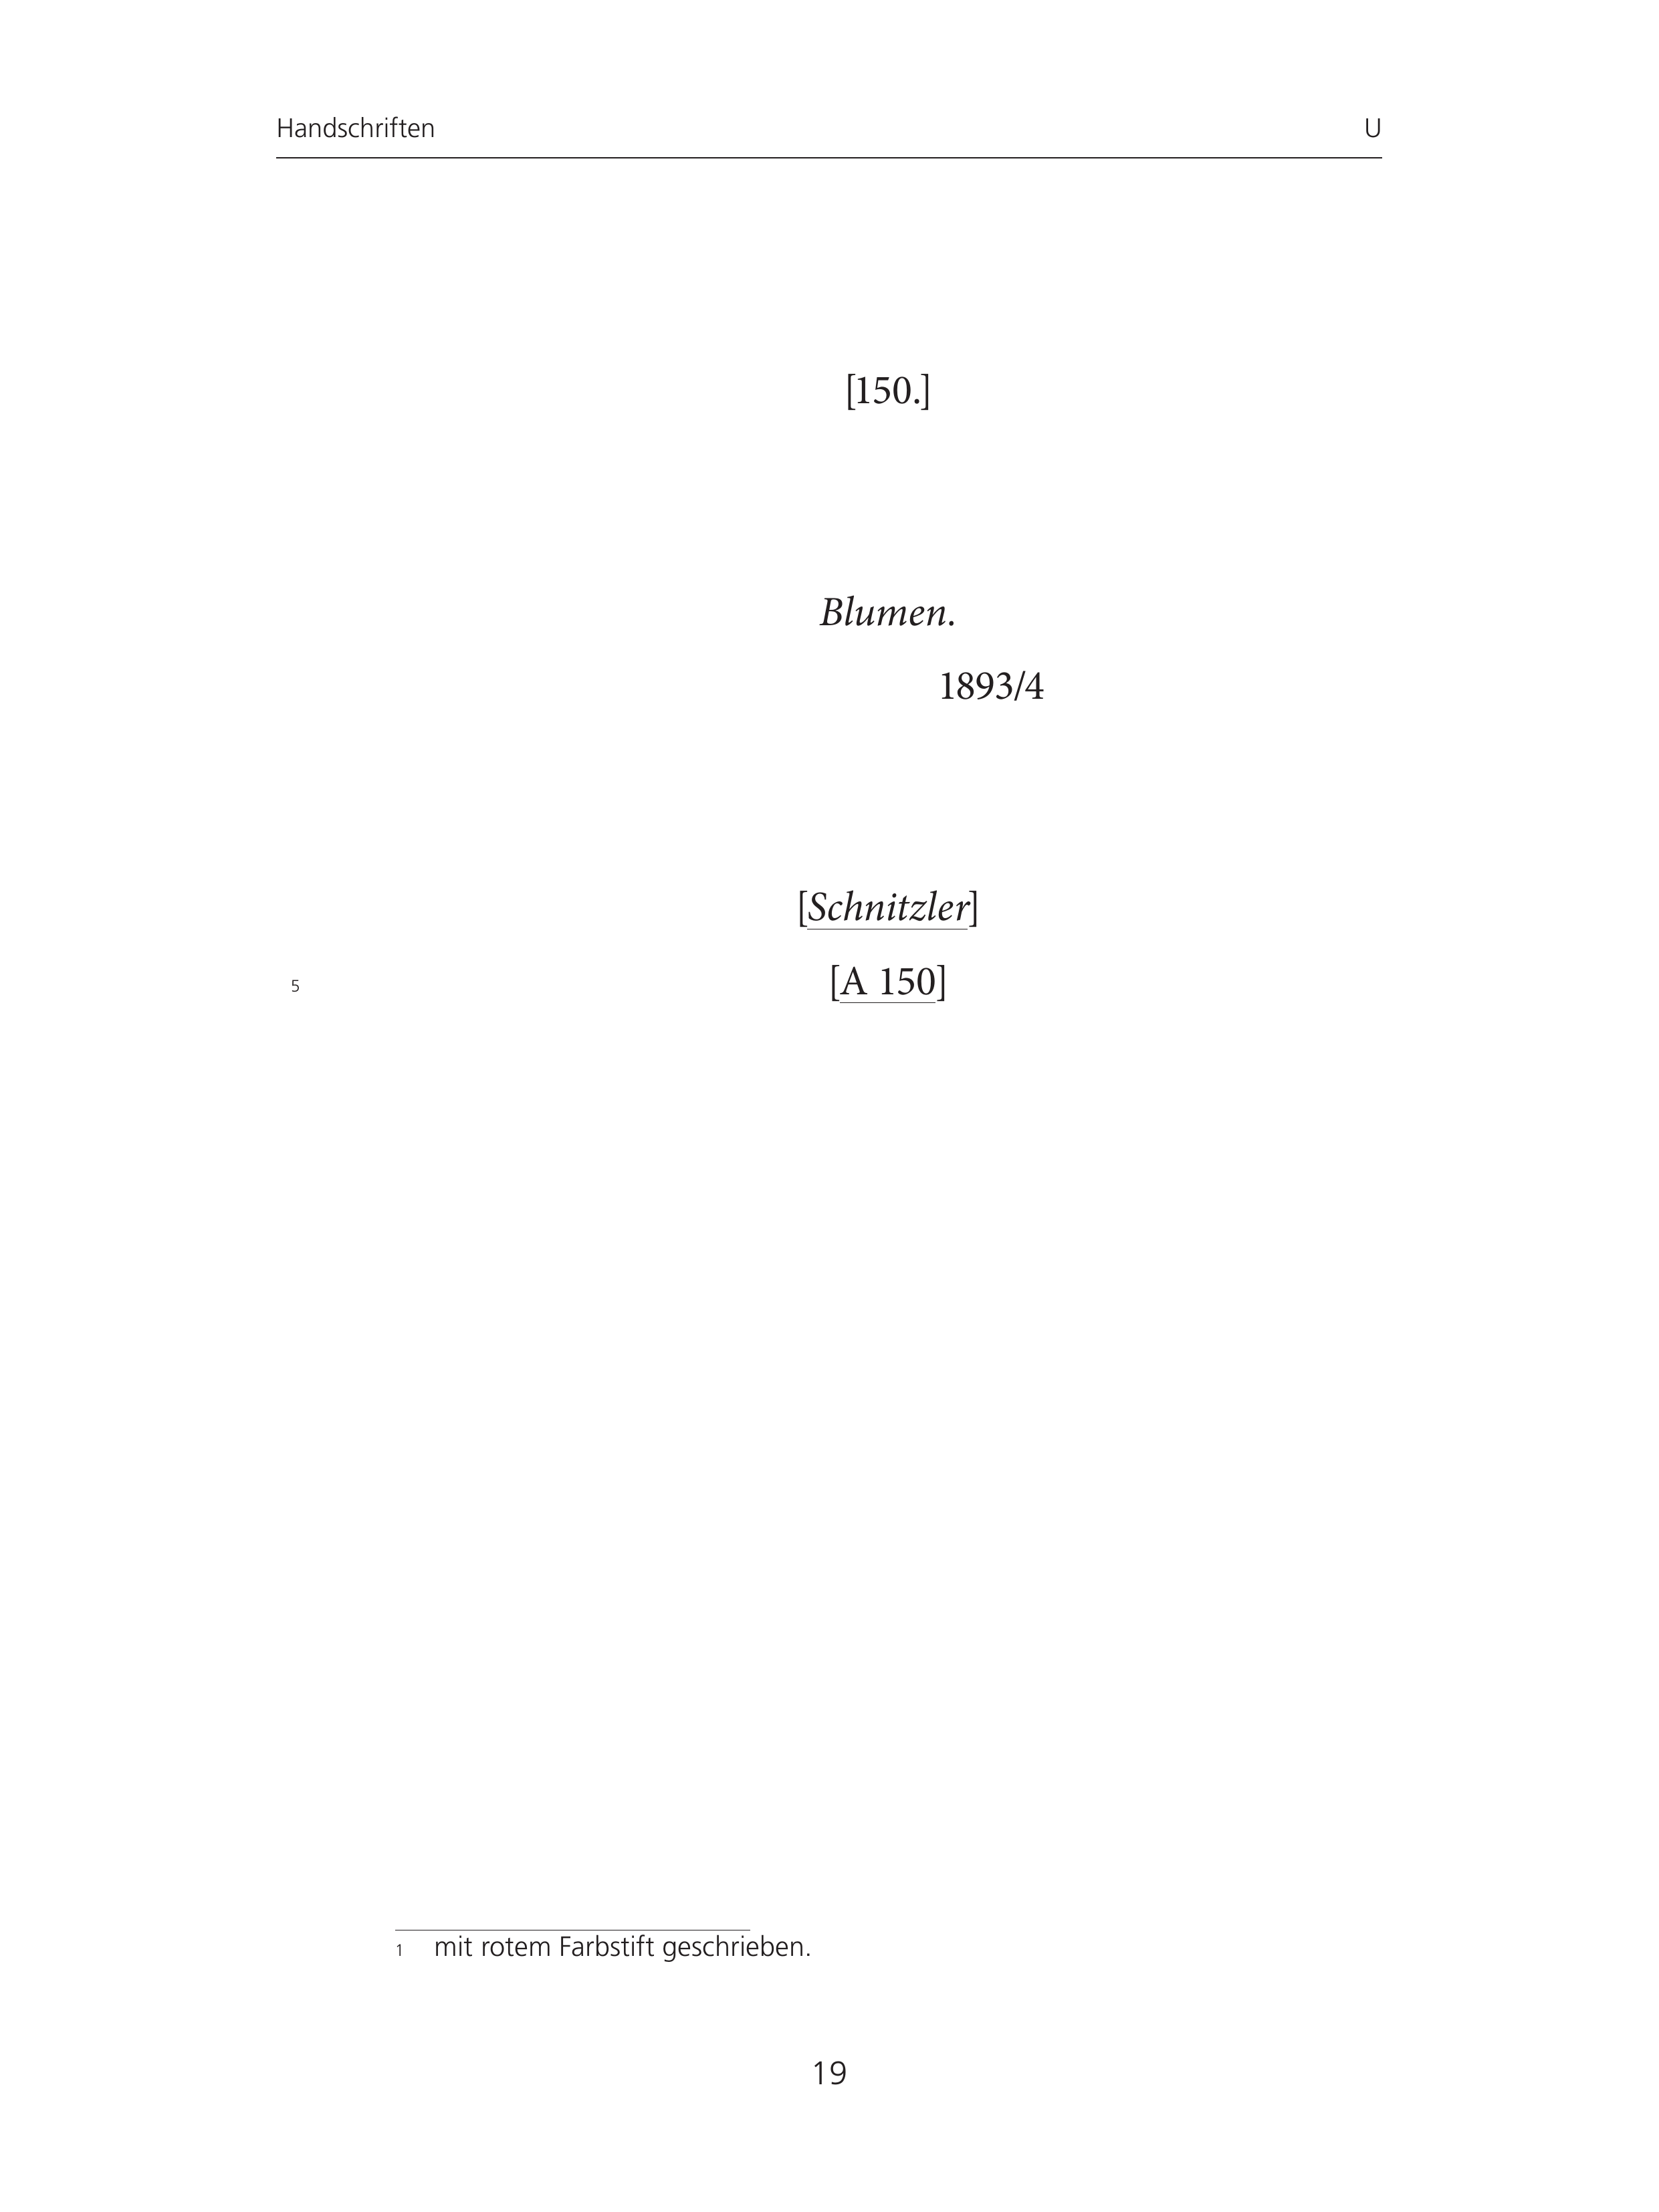 Handschriften U
[150.]
Blumen.
1893/4
[Schnitzler]
5 [A 150]
1 mit rotem Farbstift geschrieben.
19